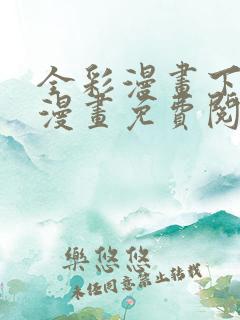 全彩漫畫下
漫畫免費閱
樂悠悠
未经同意禁止转载